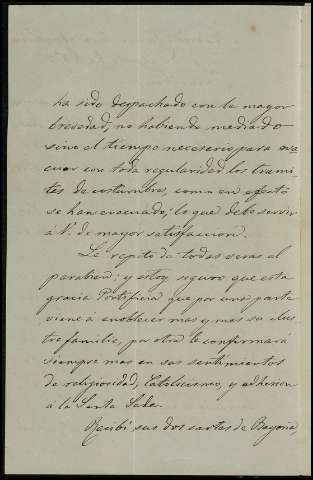 ha sido despachado con la mayor
brevedad, no habiendo mediado
sino el tiempo necesario para eva
cuar con toda regularidad los trami
tes de costumbre, como en efecto
se han evacuado; lo que debe servir
á V. de mayor satisfaccion.
Le repito de todas veras el
parabien; y estoy seguro que esta
gracia Pontificia que por una parte
viene á enoblecer mas y mas su ilus
tre familia, por otra le confirmará
siempre mas en sus sentimientos
de religiosidad, Catolicismo, y adhesion
á la Santa Sede.
Recibí sus dos cartas de Bayona,